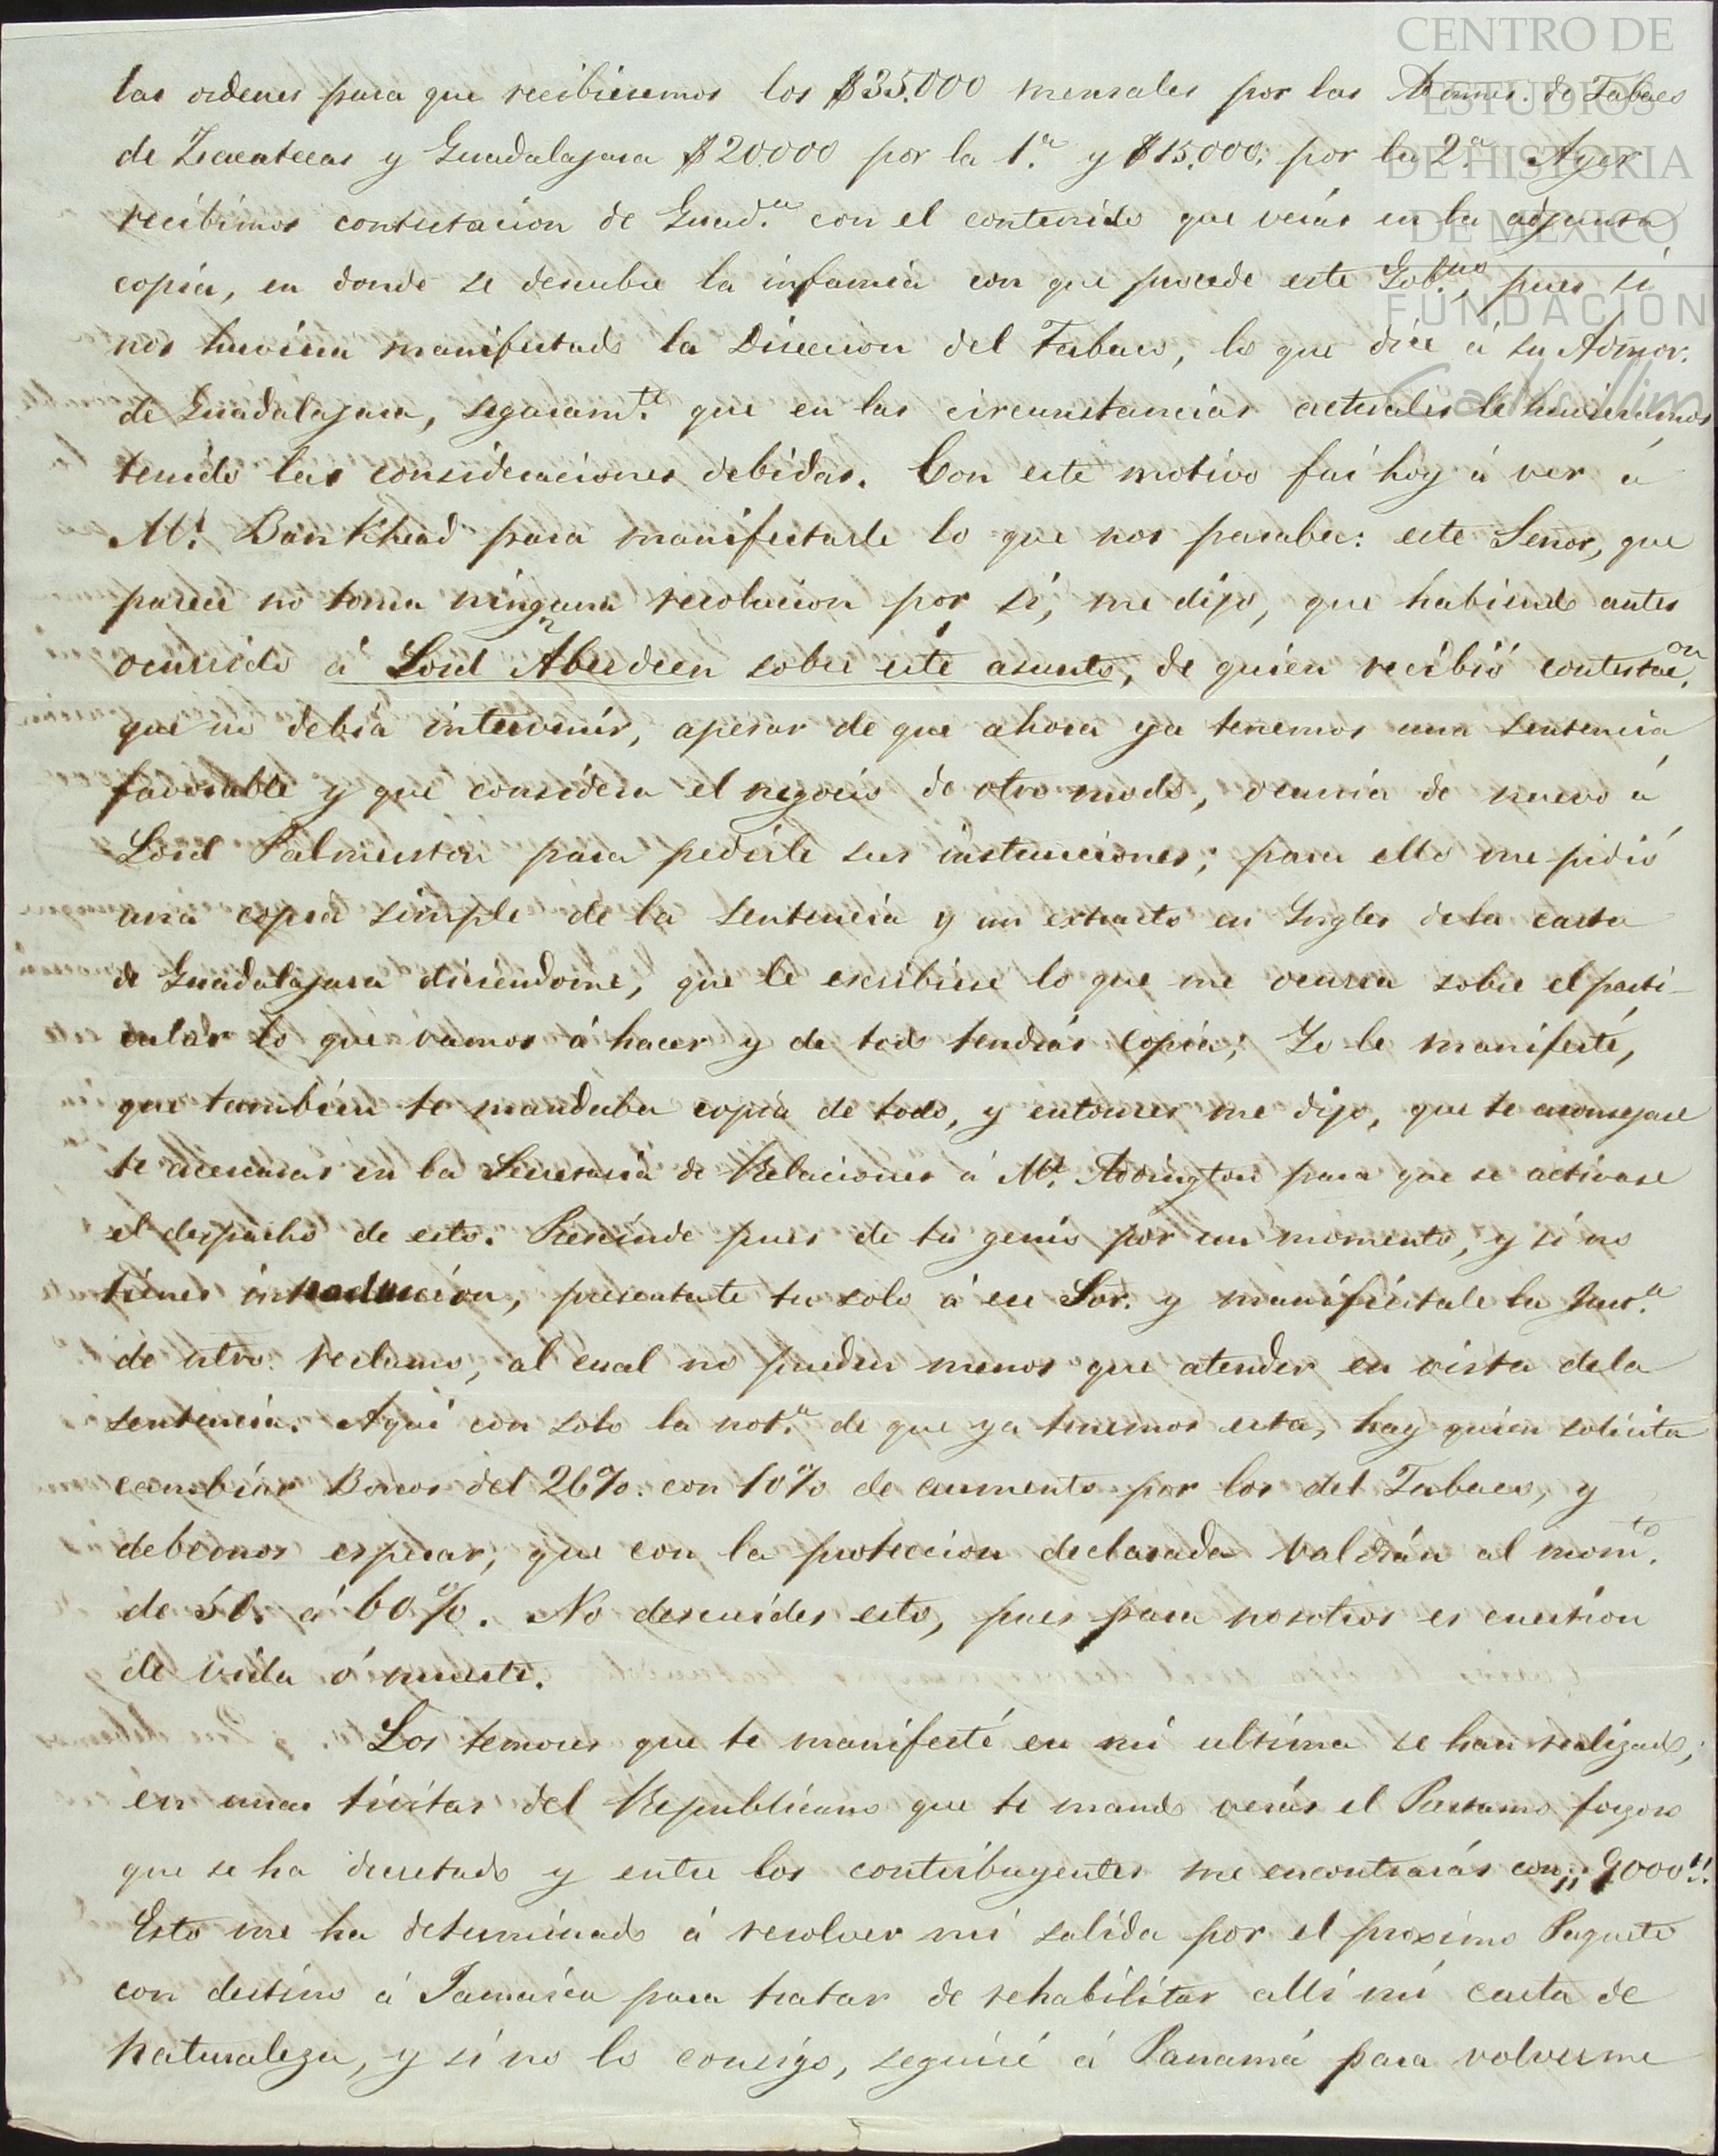 las ordenes para que recibieremos los $35.000 mensales por las Admnes. de Tabaco
de Zacatecas y Guadalajara $20.000 por la 1.a y $15.000, por la 2.a Ayer
recibimos contestacion de Guad.a con el contenido que verás en la adjunta
copia, en donde se descubre la infamia con que procede este Gob.no, pues si
nos huviera manifestado la Direccion del Tabaco, lo que dice á su Admor.
de Guadalajara, seguram.te que en las circunstancias actuales le huvieramos
tenido las consideraciones debidas. Con este motivo fui hoy á ver á
Mr. Bankhead para manifestarle lo que nos pasaba: este Señor, que
parece no toma ninguna resolucion por si, me dijo, que habiendo antes
ocurrido á Lord Aberdeen sobre este asunto, de quien recibió contestac.on
que no debia intervenir, apesar de que ahora ya tenemos una sentencia
favorable y que considera el negocio de otro modo, ocurria de nuevo á
Lord Palmerston para pedirle sus instrucciones; para ello me pidió
una copia simple de la sentencia y un extracto en Yngles dela carta
de Guadalajara diciendome, que le escribiese lo que me ocurra sobre el parti-
cular lo que vamos á hacer y de todo tendrás copia; Yo le manifesté,
que tambien te mandaba copia de todo, y entonces me dijo, que te aconsejase
te acercaras en la Secretaria de Relaciones á Mr. Addington para que se activase
el despacho de esto. Prescinde pues de tu genio por un momento, y si no
tienes introduccion, presentate tu solo á ese Sor. y manifiestale la Just.a
de ntro. reclamo, al cual no pueden menos que atender en vista dela
sentencia. Aqui con solo la not.a de que ya tenemos esta, hay quien solicita
cambiar Bonos del 26%. con 10% de aumento por los del Tabaco, y
debemos esperar, que con la proteccion declarada valdrán al mom.to
de 50. á 60%. No descuides esto, pues para nosotros es cuestion
de vida ó muerte.
Los temores que te manifesté en mi ultima se han realizado;
en unas tiritas del Republicano que te mando verás el Prestamo forzoso
que se ha decretado y entre los contribuyentes me encontrarás con,, 9000!!
Esto me ha determinado á resolver mi salida por el proximo Paquete
con destino á Jamaica para tratar de rehabilitar alli mi carta de
naturaleza, y si no lo consigo, seguiré á Panamá para volverme
CENTRO DE
ESTUDIOS
DE HISTORIA
DE MEXICO
FUNDACIÓN
Carlos Slim